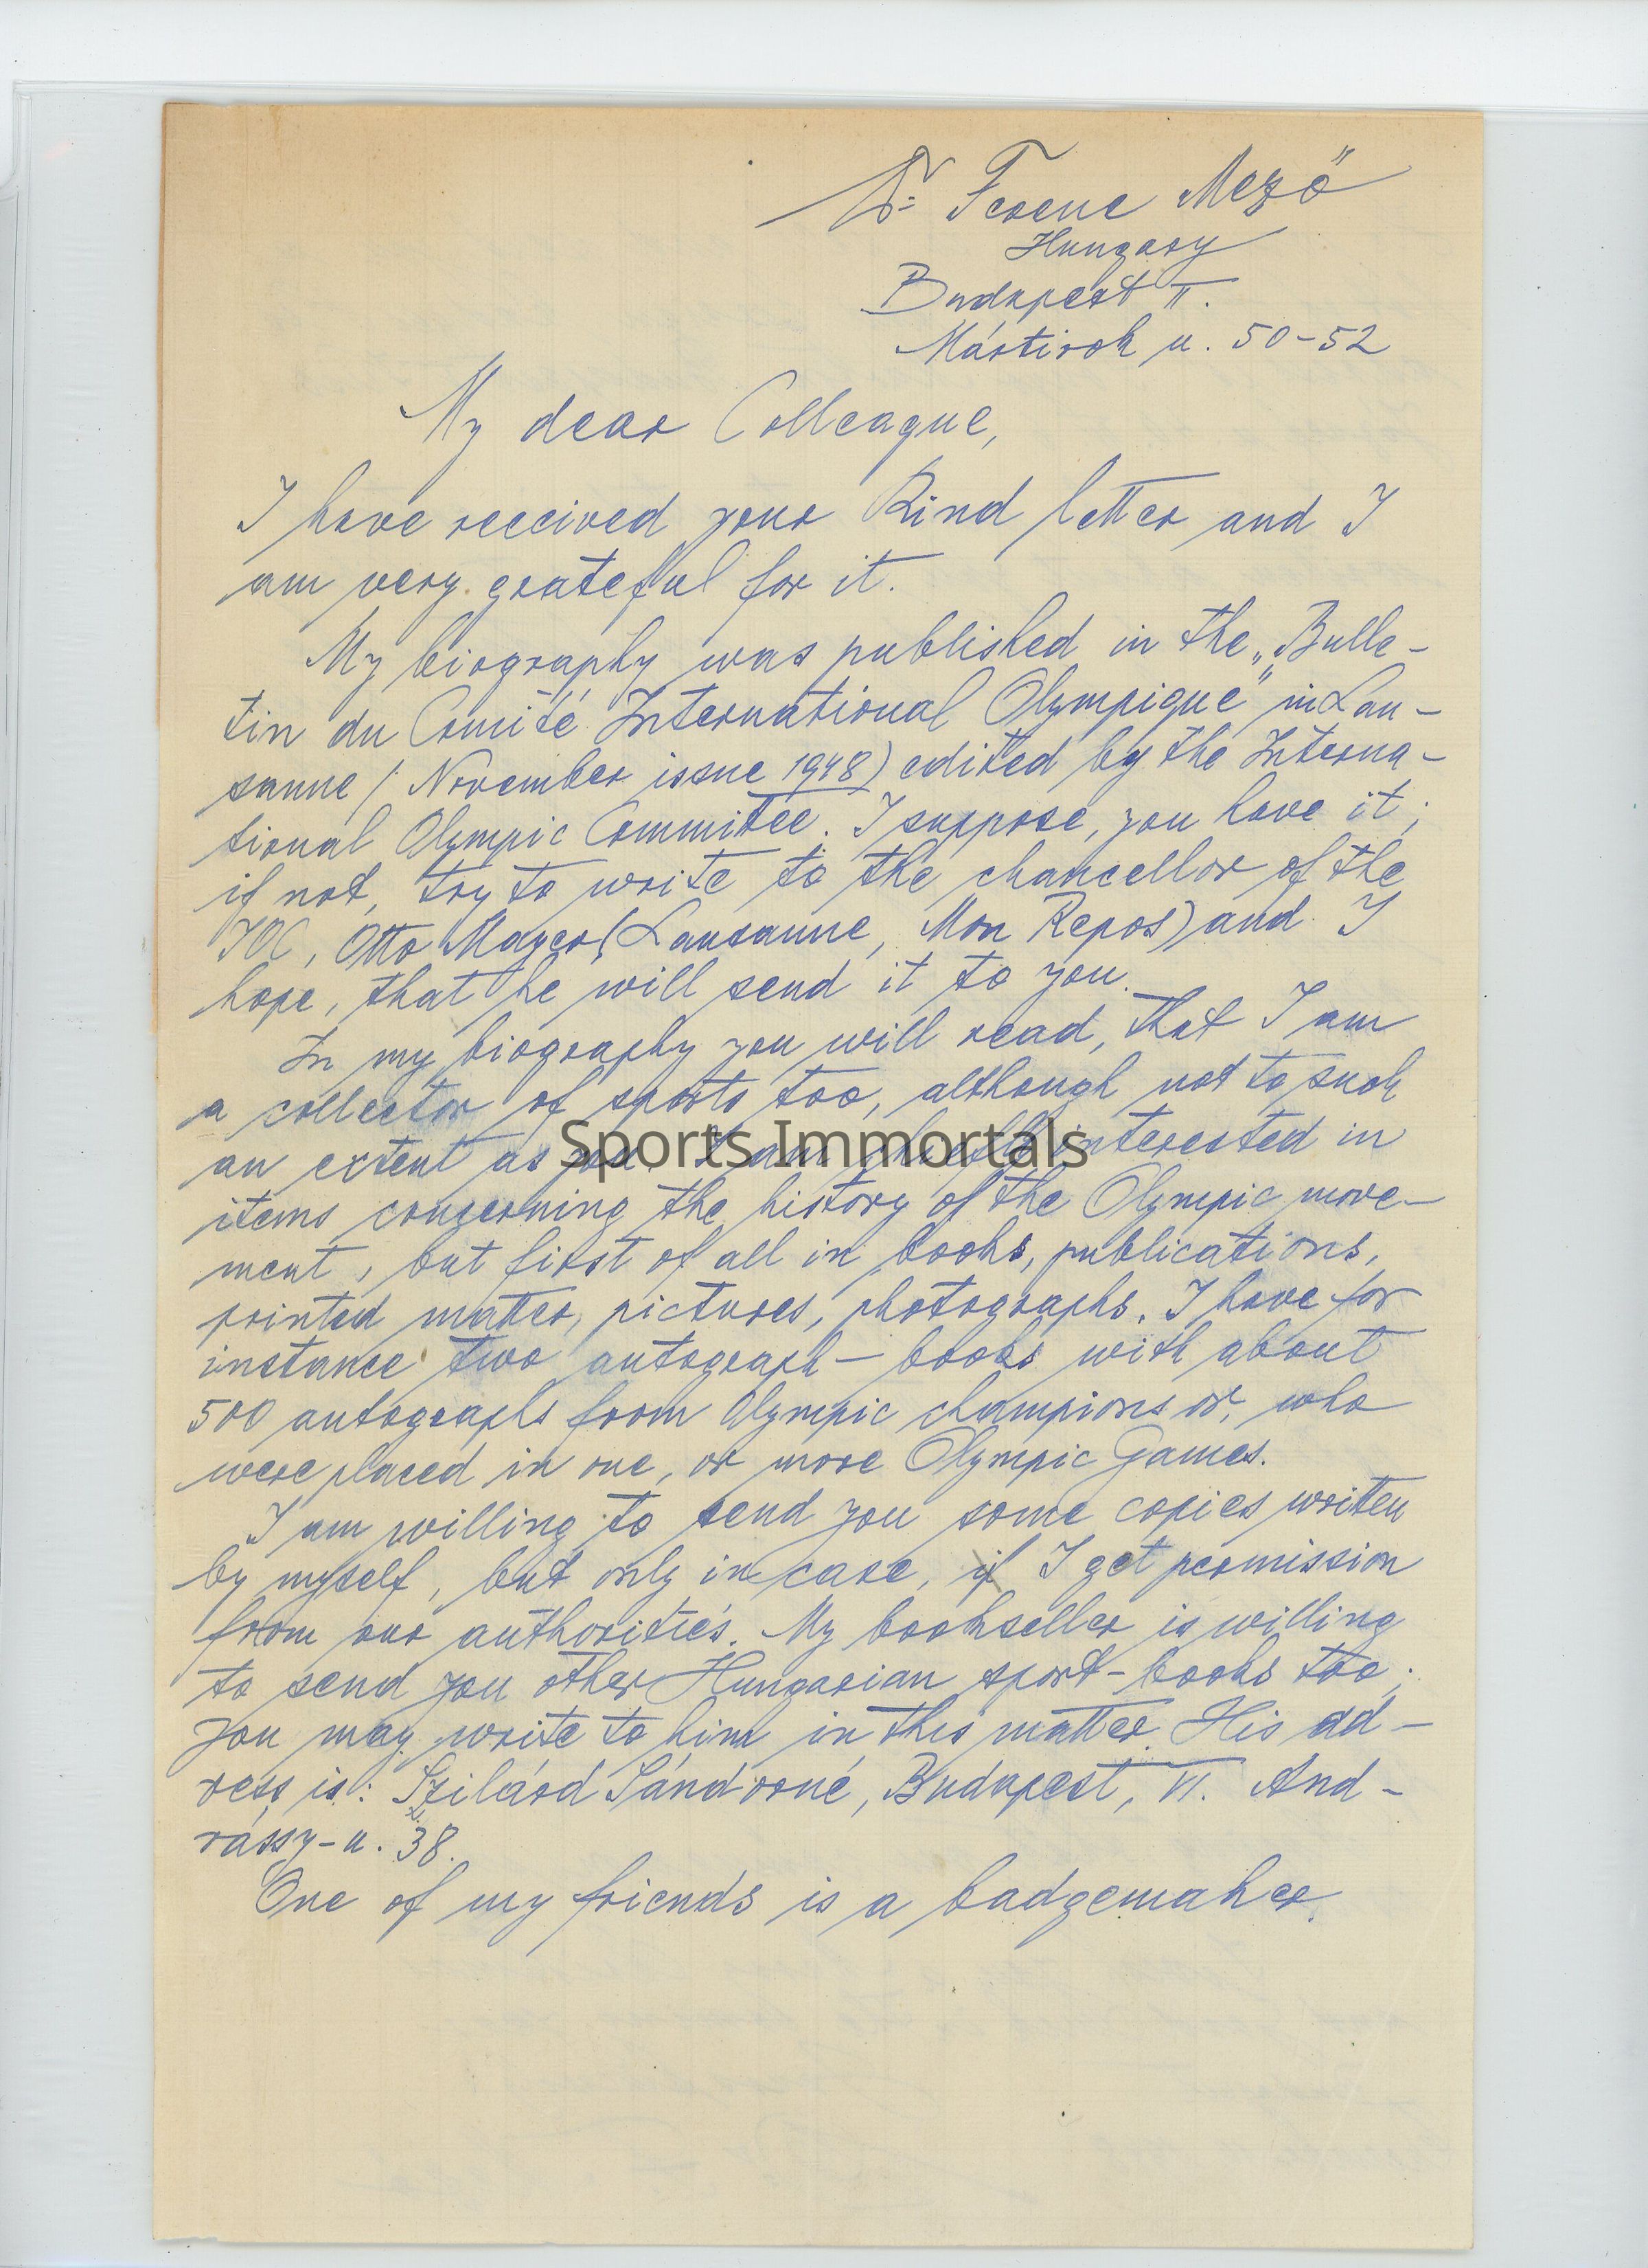 Dr Ferenc Mező
Hungary
Budapest II.
Mártirok u. 50-52
My dear Colleague,
I have received your kind letter and I
am very grateful for it.
My biography was published in the „Bulle-
tin du Comité International Olympique" in Lau-
sanne (November issue 1948) edited by the Interna-
tional Olympic Committee. I suppose, you have it;
if not, try to write to the chancellor of the
IOC, Otto Mayer, (Lausanne, Mon Repos) and I
hope, that he will send it to you.
In my biography you will read, that I am
a collector of sports too, although not to such
an extent as you. I am chiefly interested in
Sports Immortals
items concerning the history of the Olympic move-
ment, but first of all in books, publications,
printed matter, pictures, photographs. I have for
instance two autograph-books with about
500 autographs from Olympic champions or, who
were placed in one, or more Olympic Games.
I am willing to send you some copies writen
by myself, but only in case, if I get permission
from our authorities. My bookseller is willing
to send you other Hungarian sport-books too;
you may write to him in this matter. His ad-
ress is: Szilárd Sándorné, Budapest, VI. And-
rássy-u. 38.
One of my friends is a badgemaker.